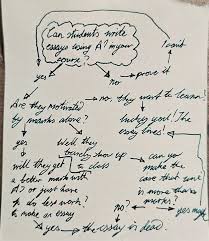 Can students write
essays using AI in your
course?
I quit
yes
no → prove it
Are they motivated
by marks alone?
no, they want to learn!
yes
Well they
lucky you! The
essay lives!
will they get
a better mark with
AI or just have
to do less work?
to make an essay
show up
a class
can you
make the
case that
is
more than
no?
yes
yes → the essay is dead.